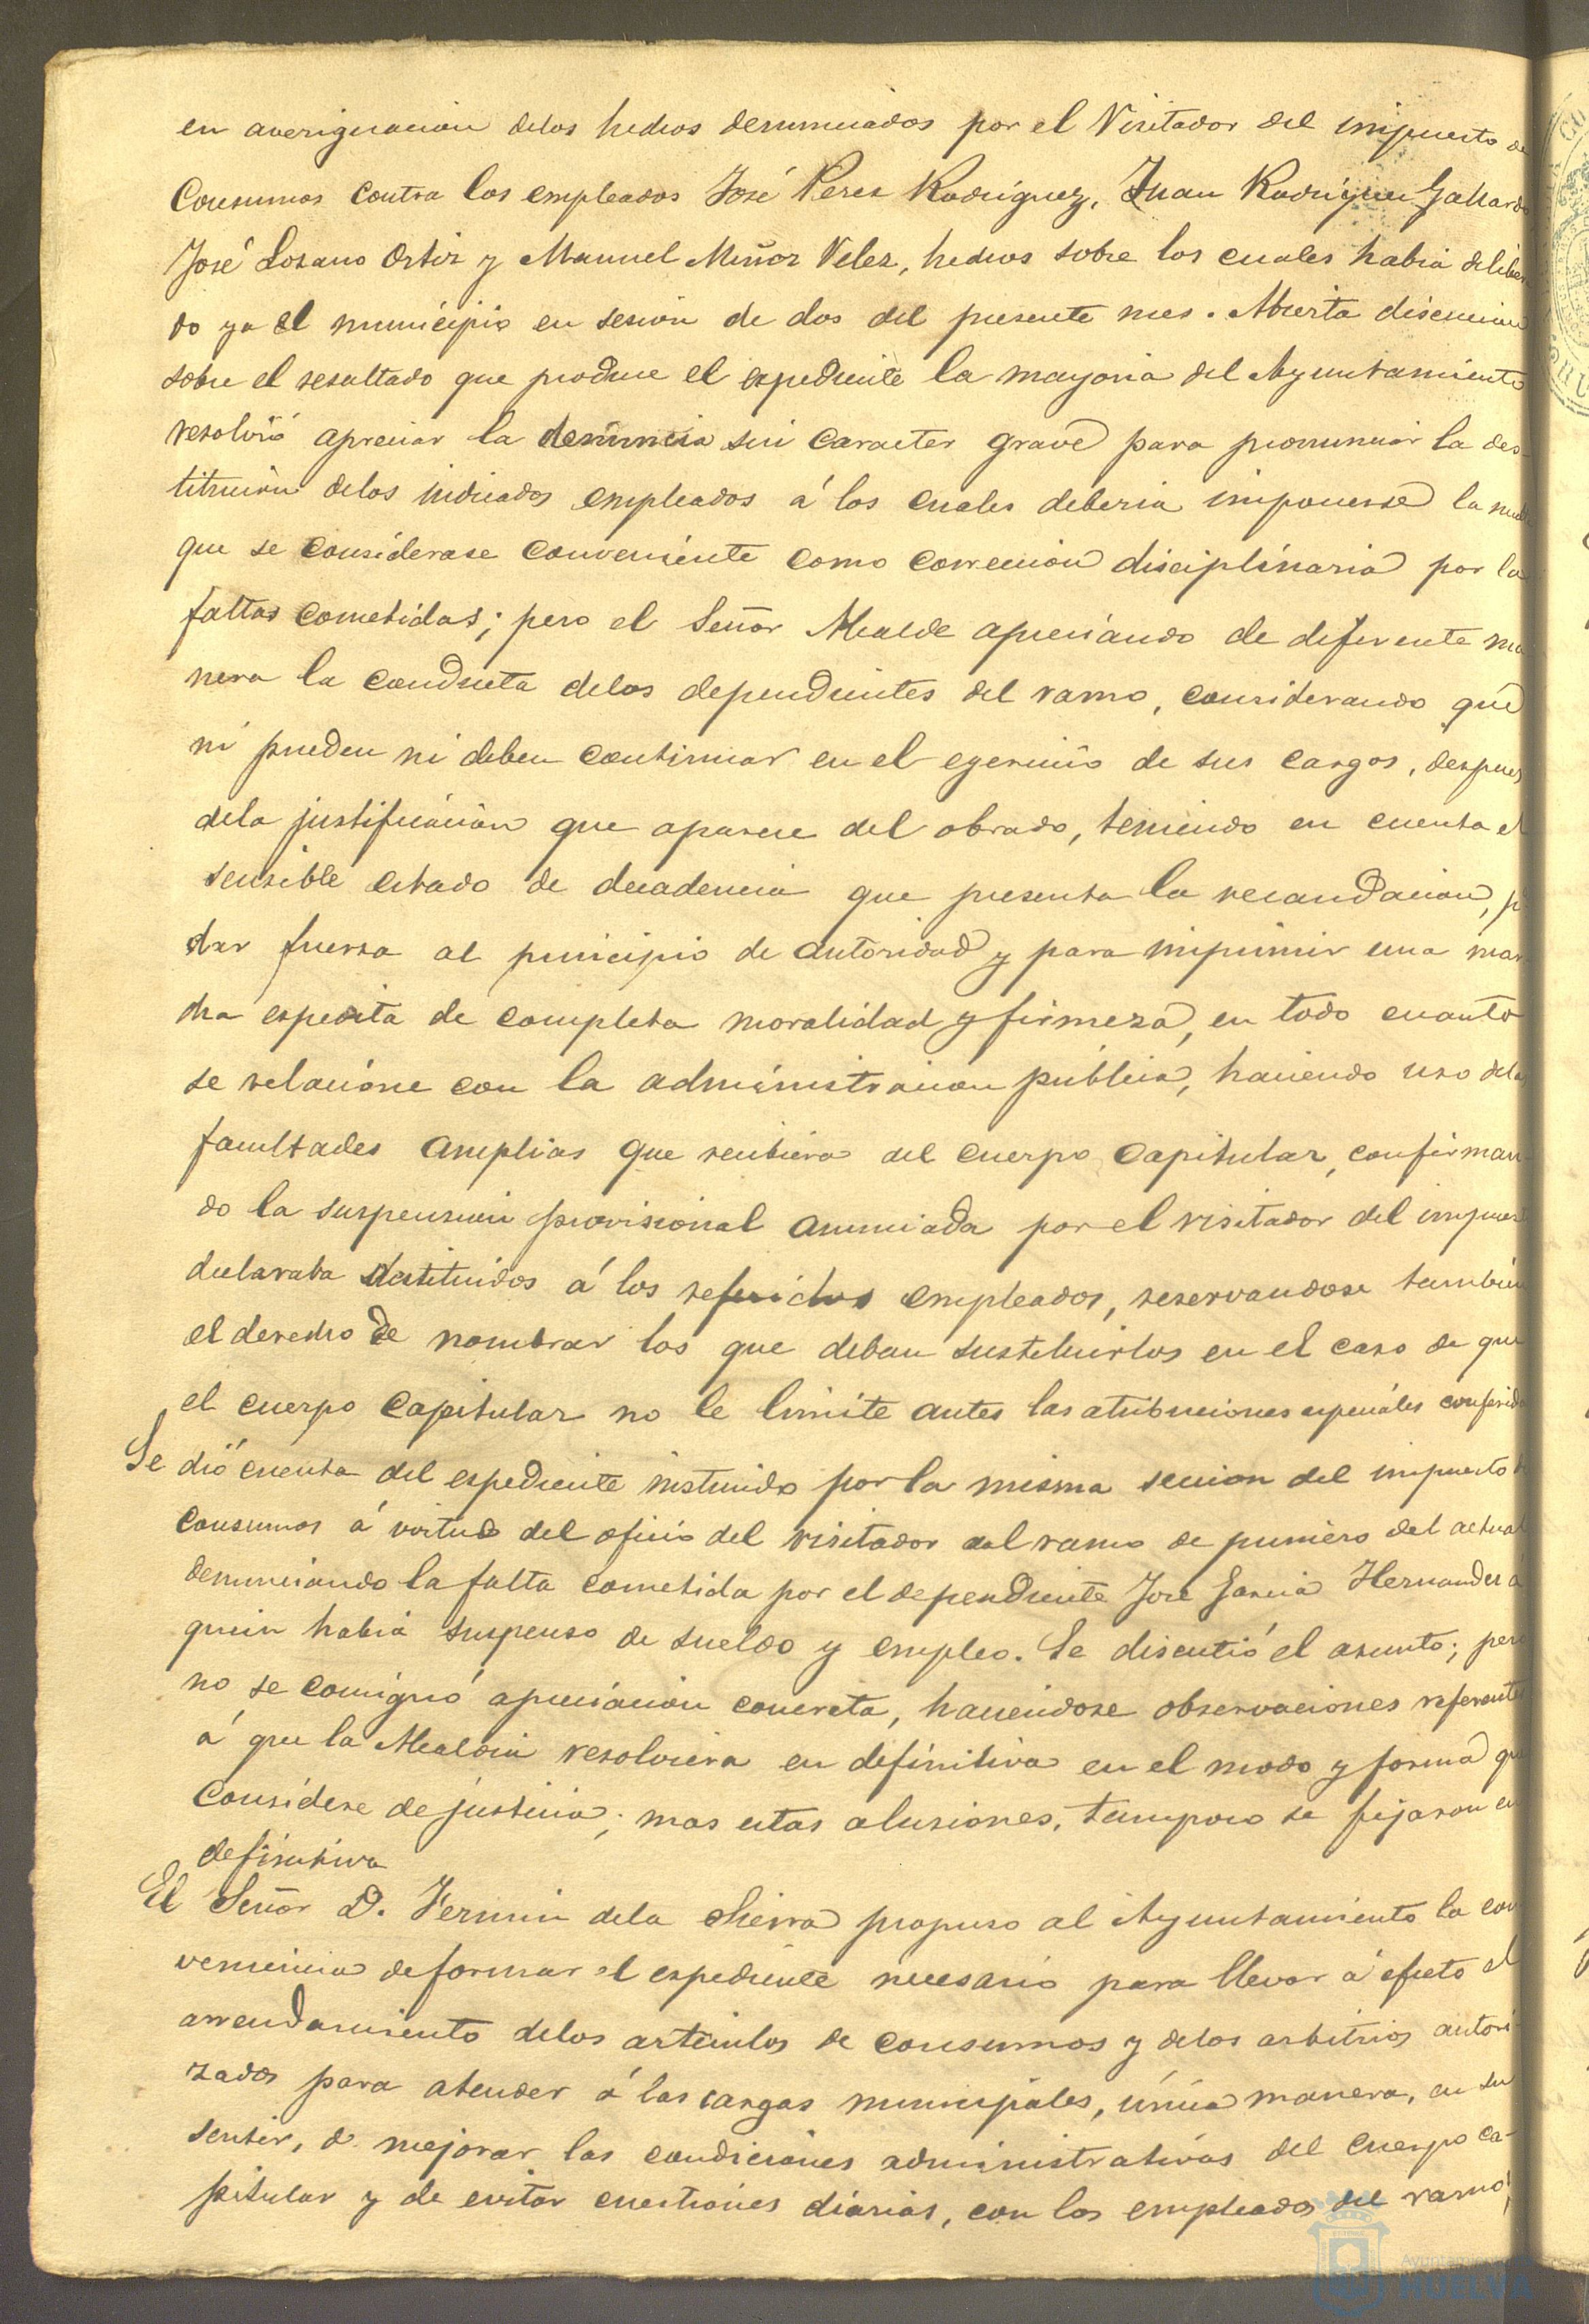 en averiguacion delos hechos denunciados por el Visitador del impuesto de
Consumos contra los empleados José Perez Rodriguez, Juan Rodriguez Gallardo
José Lozano Ortiz y Manuel Muñoz Velez, hechos sobre los cuales habia delibera
do ya el municipio en sesion de dos del presente mes. Abierta discusion
sobre el resultado que produce el espediente la mayoria del Ayuntamiento
resolvió apreciar la denuncia sin caracter grave para pronunciar la des-
titucion delos indicados empleados á los cuales deberia imponerse la multa
que se considerase conveniente como correccion disciplinaria por las
faltas cometidas; pero el Señor Alcalde apreciando de diferente ma
nera la conducta delos dependientes del ramo, considerando que
ni pueden ni deben continuar en el egercicio de sus cargos, despues
dela justificacion que aparece del obrado, teniendo en cuenta el
sensible estado de decadencia que presenta la recaudacion, p
dar fuerza al principio de autoridad y para imprimir una mar
cha espedita de completa moralidad y firmeza, en todo cuanto
se relacione con la administracion pública, haciendo uso delas
facultades amplias que recibiera del cuerpo Capitular, confirman-
do la suspension provisional anunciada por el visitador del impuesto
declaraba destituidos á los referidos empleados, reservandose tambien
el derecho de nombrar los que deban sustituirlos en el caso de que
el cuerpo Capitular no le limite antes las atribuciones especiales conferidas
Se dió cuenta del espediente instruido por la misma seccion del impuesto de
consumos á virtud del oficio del visitador del ramo de primero del actual
denunciando la falta cometida por el dependiente José Garcia Hernandez á
quien habia suspenso de sueldo y empleo. Se discutió el asunto; pero
no se consignó apreciacion concreta, haciendose observaciones referentes
á que la Alcaldia resolviera en definitiva en el modo y forma que
considere de justicia; mas estas alusiones, tampoco se fijaron en
definitiva
El Señor D. Fermin dela Sierra propuso al Ayuntamiento la con
veniencia de formar el espediente necesario para llevar á efecto el
arrendamiento delos articulos de consumos y delos arbitrios autori-
zados para atender á las cargas municipales, única manera, en su
sentir, de mejorar las condiciones administrativas del Cuerpo ca-
pitular y de evitar cuestiones diarias, con los empleados del ramo,
Ayuntamiento
HUELVA